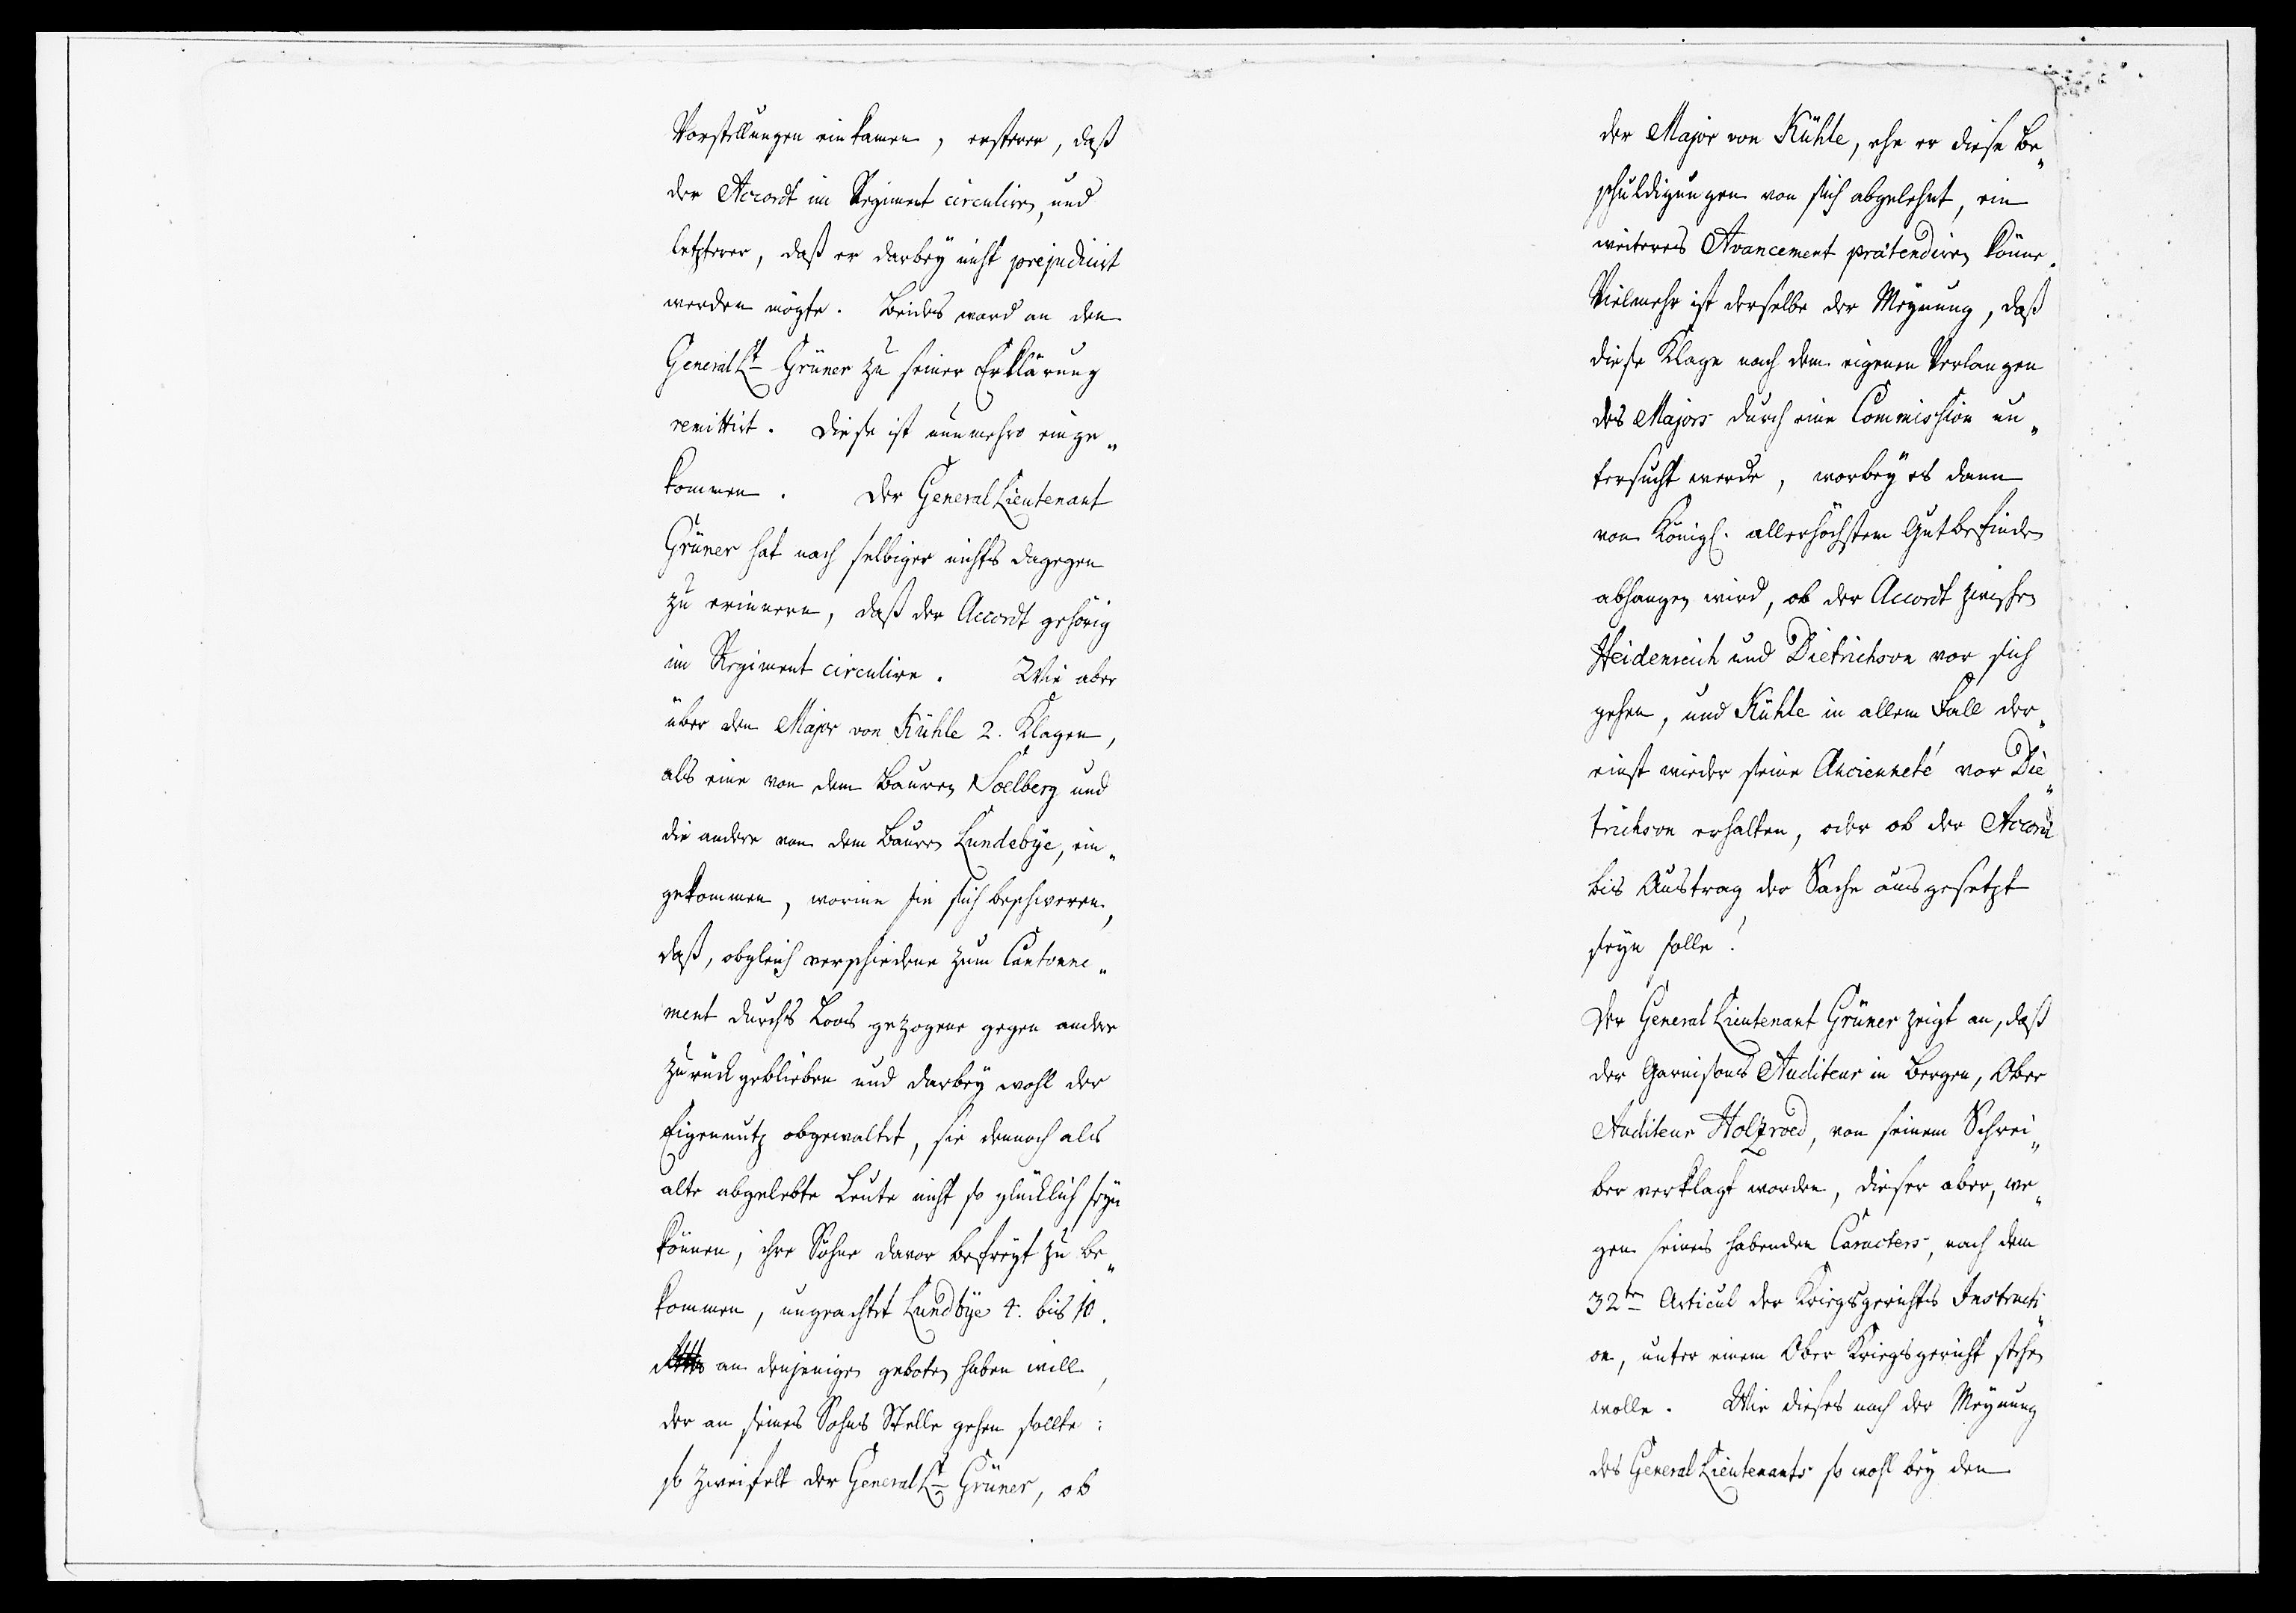 Vorstellungen einkamen, ersterer, daß
der Accordt im Regiment circuliren, und
letzterer, daß er darbey nicht prejudicirt
werden mögte. Beides ward an den
General Lt Grüner zu seiner Erklärung
remittirt. Diese ist nunmehro einge„
kommen. Der General Lieutenant
Grüner hat nach selbiger nichts dagegen
zu erinnern, daß der Accordt gehörig
im Regiment circulire. Wie aber
über den Major von Kühle 2. Klagen,
als eine von dem Bauren Soelberg und
die andere von dem Bauren Lundebye, ein„
gekommen, worinn sie sich beschweren,
daß, obgleich verschiedene zum Cantonne„
ment durchs Loos gezogene gegen andere
zurückgeblieben und darbey wohl der
Eigennutz obgewaltet, sie dennoch als
alte abgelebte Leute nicht so glücklich seyn
können, ihre Söhne davor befreyt zu be„
kommen, ungeachtet Lundbye 4. bis 10.
an denjenigen geboten haben will,
der an seines Sohns Stelle gehen sollte:
so zweifelt der General Lt Grüner, ob
der Major von Kühle, ehe er diese Be„
schuldigungen von sich abgelehnt, ein
weiteres Avancement prätendiren könne.
Vielmehr ist derselbe der Meynung, daß
diese Klage nach dem eigenen Verlangen
des Majors durch eine Commission un„
tersucht werde, worbey es dann
von Königl. allerhöchstem Gutbefinden
abhangen wird, ob der Accordt zwischen
Heidenreich und Dietrichson vor sich
gehen, und Kühle in allem Fall der„
einst wieder seine Ancienneté vor Die„
trichson erhalten, oder ob der Accord
bis Austrag der Sache ausgesetzt
seyn solle!
Der General Lieutenant Grüner zeigt an, daß
der Garnisons Auditeur in Bergen, Ober
Auditeur Holzroed, von seinem Schrei„
ber verklagt worden, dieser aber, we„
gen seines habenden Caracters, nach dem
32ten Articul der Kriegsgerichts Instructi„
on, unter einem Ober Kriegsgericht stehen
wolle. Wie dieses nach der Meynung
des General Lieutenants so wohl bey den